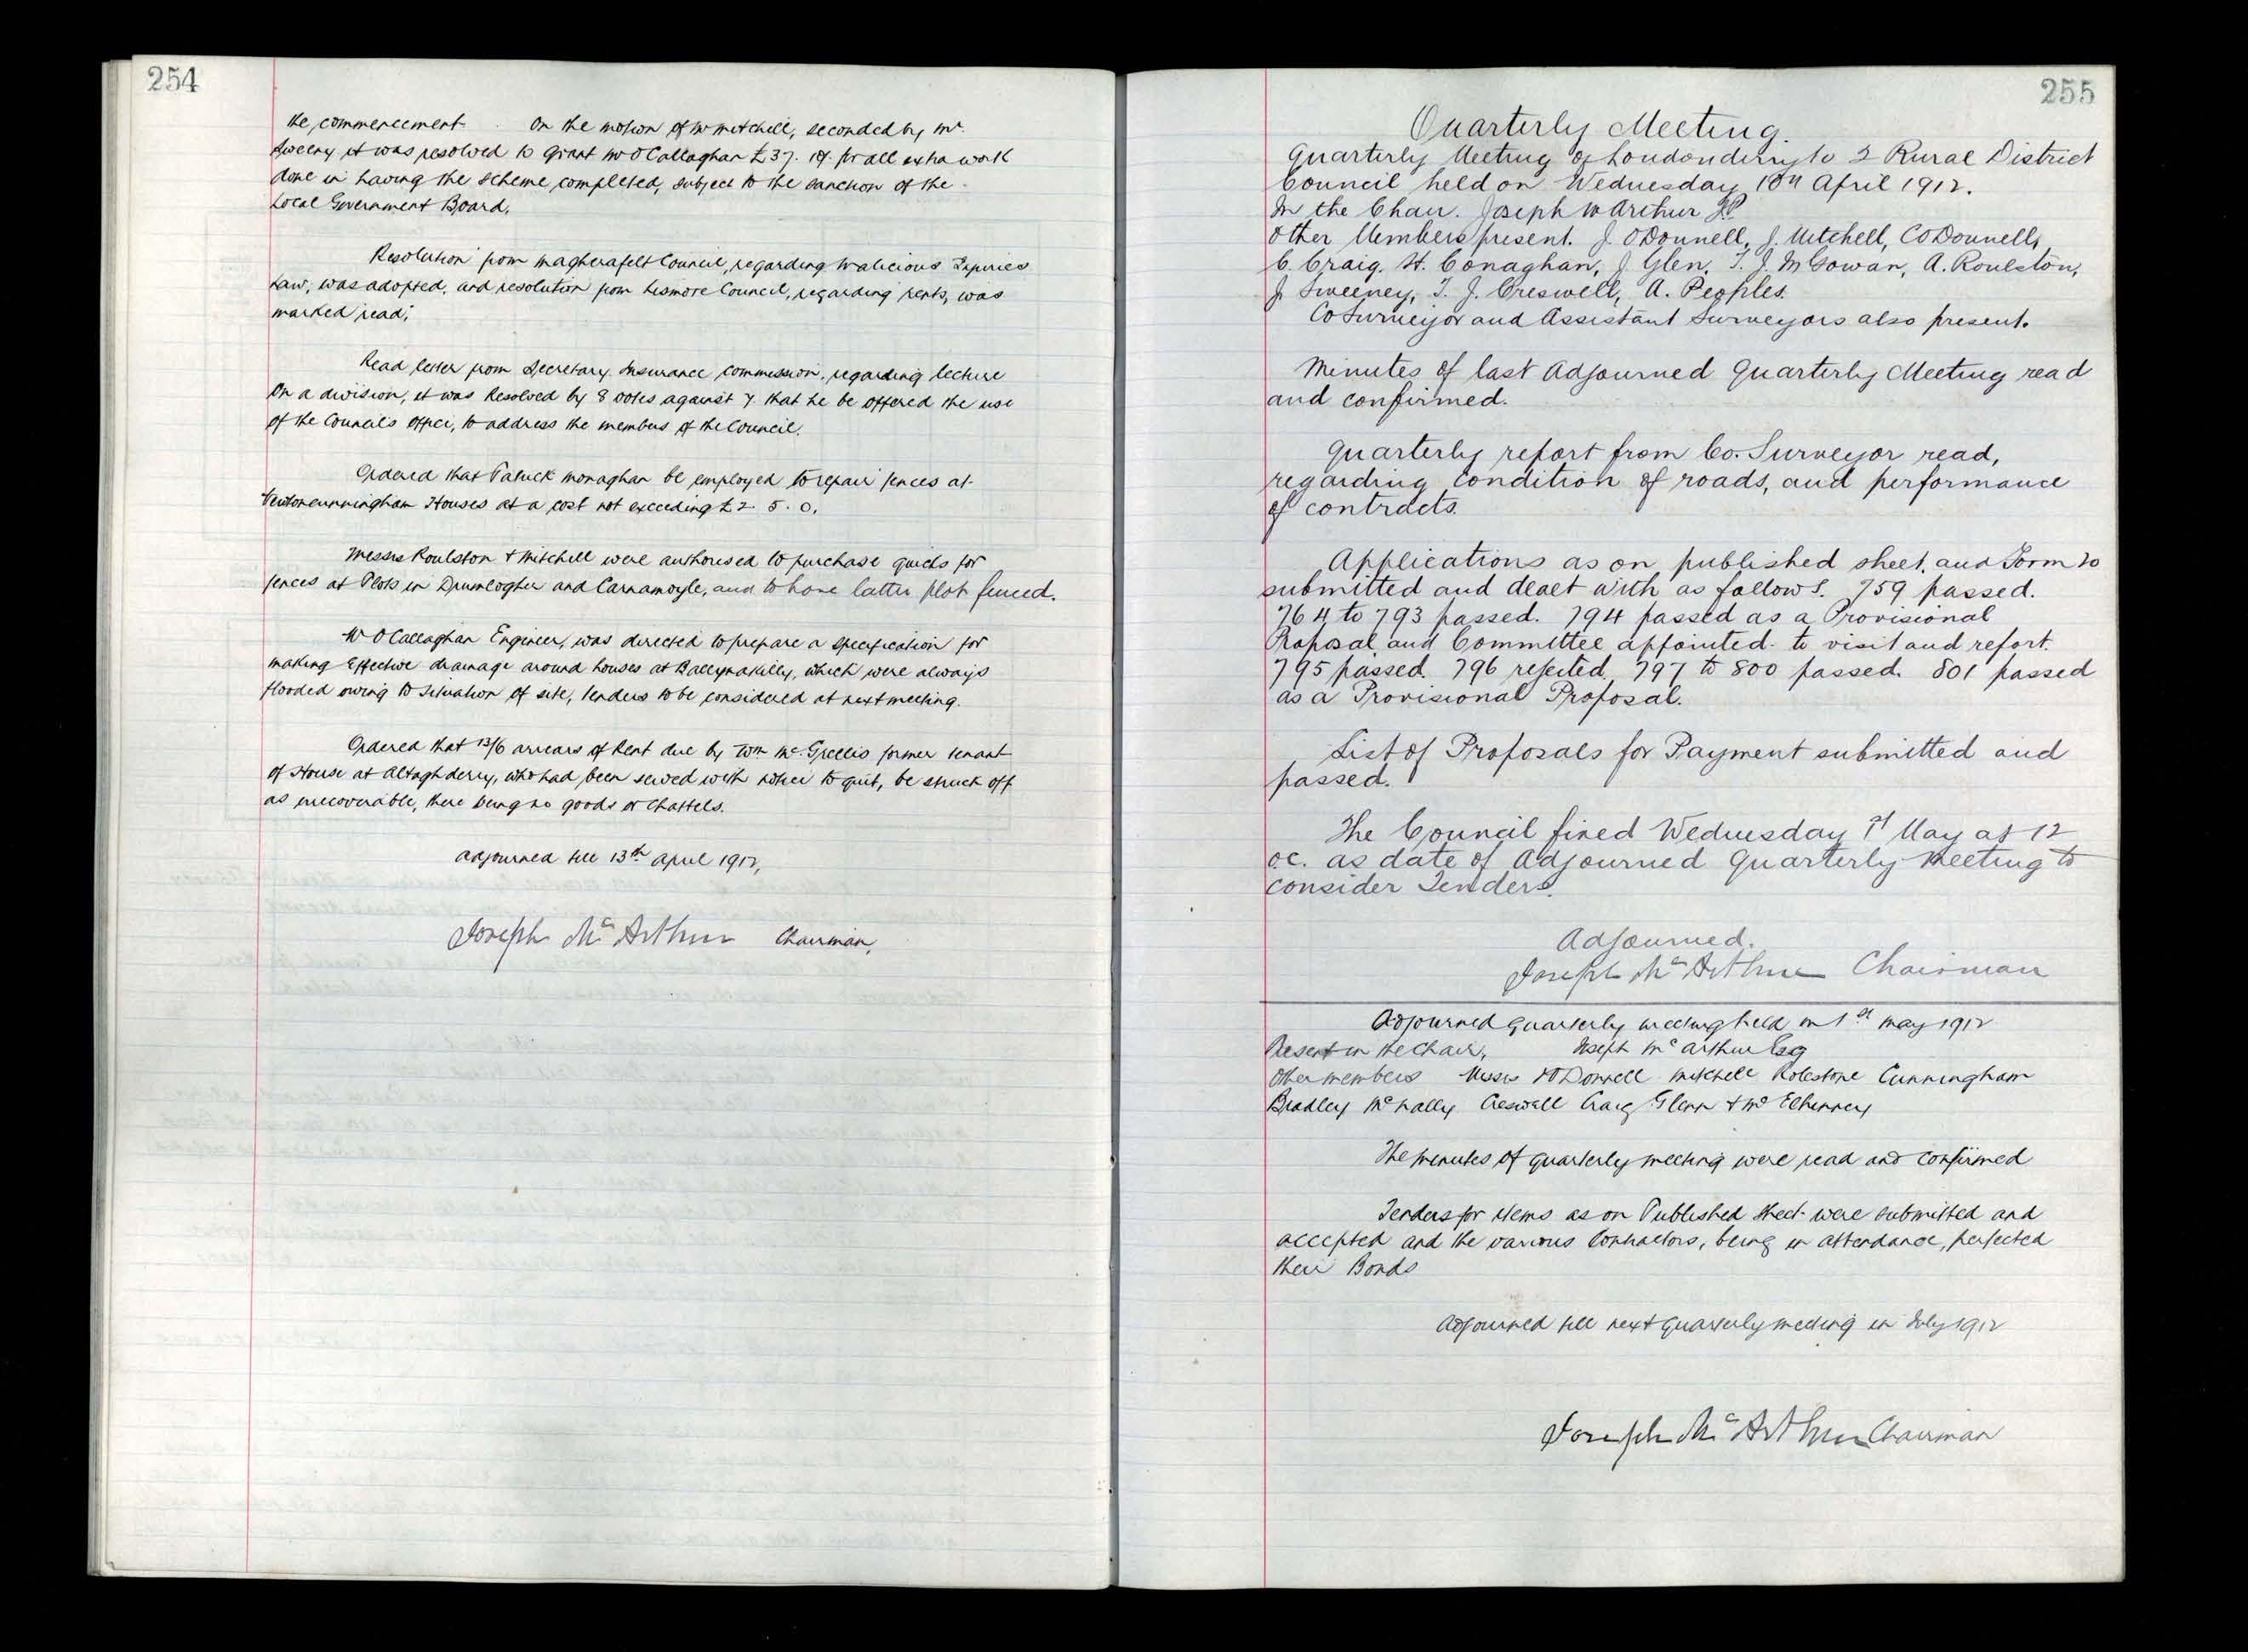 254
the commencement. On the motion of Mr Mitchell, seconded by Mr.
Sweeny it was resolved to grant Mr O'Callaghan £37. for all extra work
done in having the scheme completed, subject to the sanction of the
Local Government Board.
Resolution from Magherafelt Council, regarding Malicious Injuries
Law, was adopted, and resolution from Lismore Council, regarding rents, was
marked read;
Read letter from Secretary Insurance Commission, regarding lecture
On a division, it was Resolved by 8 votes against 7 that he be offered the use
of the Council's office, to address the members of the Council.
Ordered that Patrick Monaghan be employed to repair fences at
Newtoncunningham Houses at a cost not exceeding £2. 5. 0.
Messrs Roulston + Mitchell were authorised to purchase quicks for
fences at Plots in Drumlogher and Carnamoyle, and to have latter plot fenced.
Mr O'Callaghan Engineer, was directed to prepare a specification for
making Effective drainage around houses at Ballynakilly, which were always
flooded owing to situation of site, tenders to be considered at next meeting.
Ordered that 13/6 arrears of Rent due by Wm former tenant
of House at Altaghderry, who had been served with notice to quit, be struck off
as irrecoverable, there being no goods or chattels.
Adjourned till 13th April 1912,
Joseph McArthur Chairman,
255
Quarterly Meeting.
Quarterly Meeting of Londonderry No 2 Rural District
Council held on Wednesday 10th April 1912.
In the Chair. Joseph McArthur J.P.
Other Members present. J. O'Donnell, J. Mitchell, C O'Donnell,
C. Craig. H. Conaghan, J. Glen, T. J. McGowan, A. Roulston,
J Sweeney, T. J. Creswell, A. Peoples.
Co Surveyor and Assistant Surveyors also present.
Minutes of last Adjourned Quarterly Meeting read
and confirmed.
Quarterly report from Co. Surveyor read,
regarding condition of roads, and performance
of contracts.
Applications as on published sheet, and Form 20
submitted and dealt with as follows. 759 passed.
764 to 793 passed. 794 passed as a Provisional
Proposal, and Committee appointed to visit and report.
795 passed. 796 rejected, 797 to 800 passed. 801 passed
as a Provisional Proposal.
List of Proposals for Payment submitted and
passed.
The Council fixed Wednesday 1st May at 12
oc. as date of Adjourned Quarterly Meeting to
consider Tenders.
Adjourned.
Joseph McArthur Chairman
Adjourned Quarterly meeting held on 1st May 1912
Present in the Chair, Joseph McArthur Esq
Other members Messrs O'Donnell Mitchell Rolestone Cunningham
Bradley McNally Creswell Craig Glenn + McElhinney
The minutes of quarterly meeting were read and confirmed
Tenders for items as on Published Sheet were submitted and
accepted and the various Contractors, being in attendance, perfected
their Bonds
Adjourned till next quarterly meeting in July 1912
Joseph McArthur Chairman